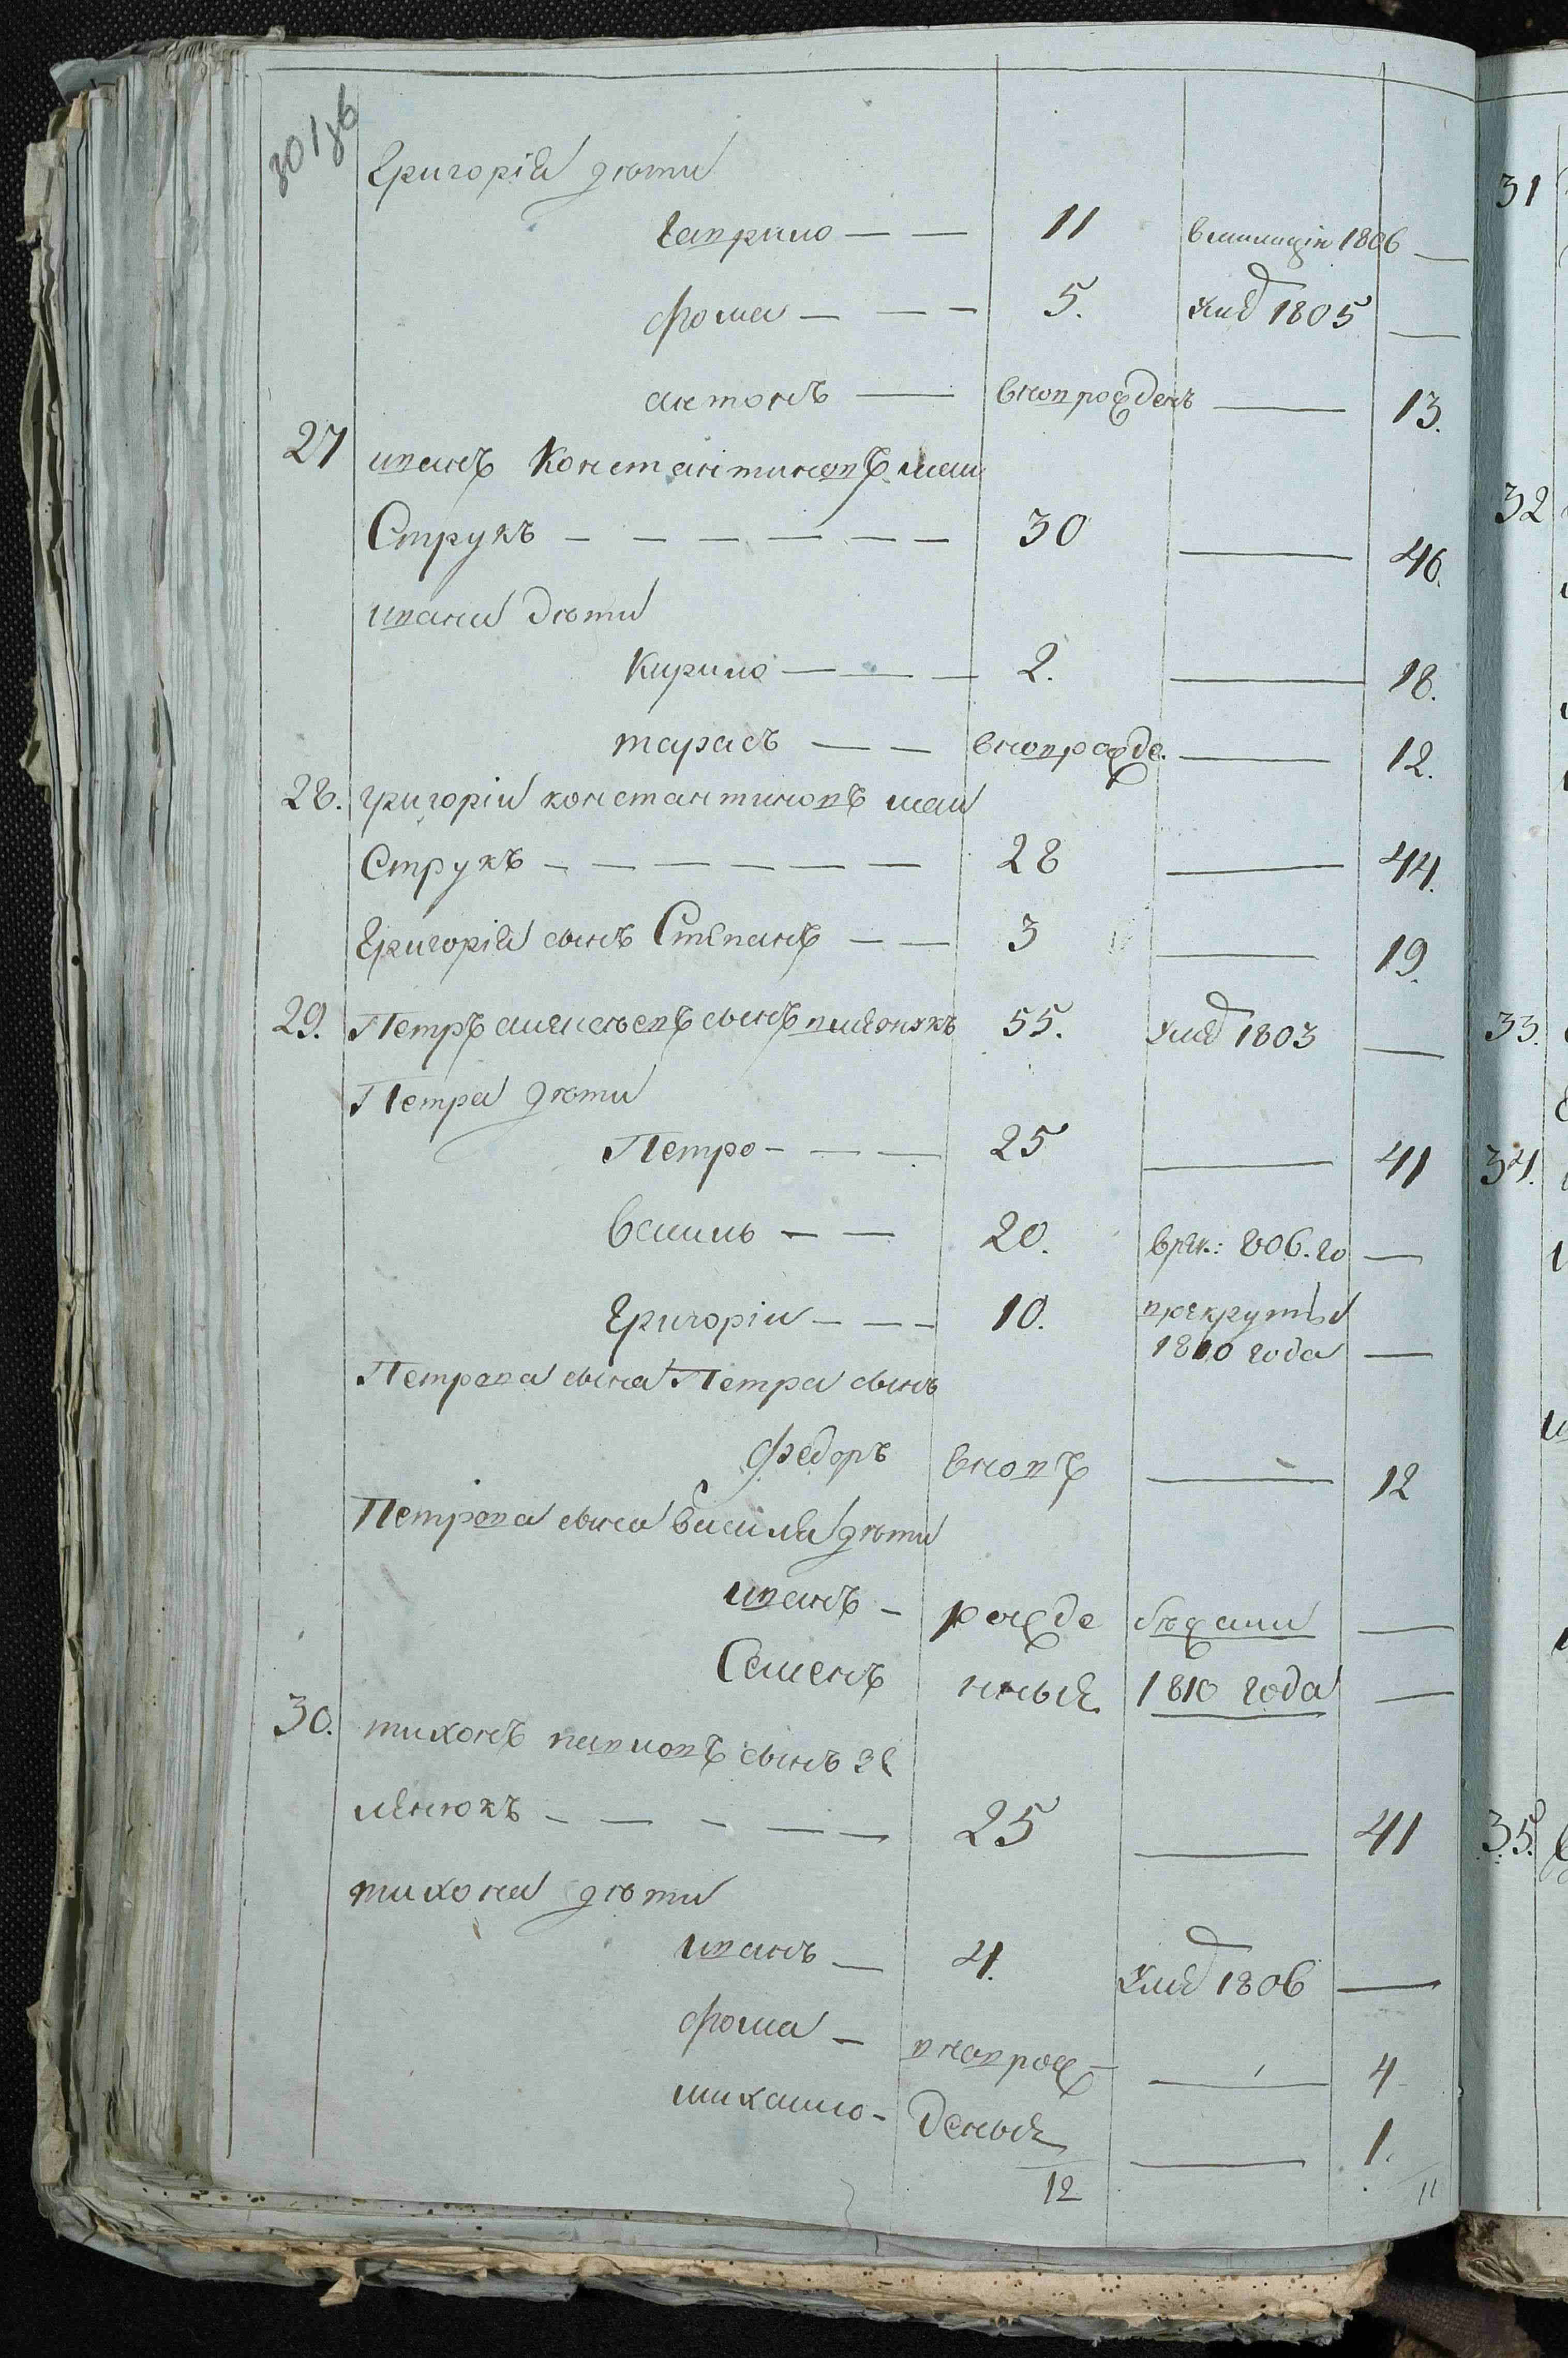 Григорія дѣти
Гаврило — — 11 вмилиціи 1806 —
фома — — — 5. умер 1805 —
антонъ — вновь рожденъ — 13.
27 иванъ Константиновъ
Струкъ — — — — — — 30 — 46.
ивана дѣти
Кирило — — — 2. — 18.
тарасъ — — вновь рожде. — 12.
28. григоріи константиновъ
Струкъ — — — — — — 28 — 44.
Григорія сынъ Степанъ — — 3 — 19.
29. Петръ алексѣевъ сынъ 55. умер 1803 —
Петра дѣти
Петро — — — 25 — 41
василь — — 20. врек.: 806. го —
Григоріи — — — 10. врекруты
1810 года —
Петрова сына Петра сынъ
федоръ вновь — 12
Петрова сына василя дѣти
иванъ — рожде бѣжали —
Семенъ нные 1810 года —
30. тихонъ павловъ сынъ зе
ленюкъ — — — — — 25 — 41
тихона дѣти
иванъ — 4. умер 1806 —
фома — вновь рож — 4
михаило — деные — 1.
12 11
31
32
33.
34.
35.